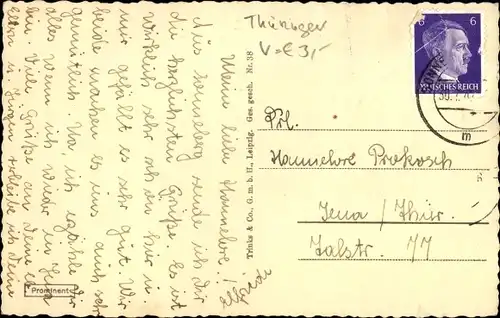 Meine liebe Hannelore!
Aus Sonneberg sende ich Dir
die herzlichsten Grüße. Es ist
wirklich sehr schön hier u.
mir gefällt es sehr gut. Wir
beide machen es uns auch sehr
gemütlich. Na, ich erzähle Dir
alles wenn ich wieder in Jena
bin. Viele Grüße an Deine
verbleibe ich Deine
Thüringer
V=€3,-
6 6
DEUTSCHES REICH
Trinks & Co., G. m. b. H., Leipzig. Ges. gesch. Nr. 38
m
Frl.
Hannelore Prokosch
Jena / Thür.
Talstr. 77
Prominent